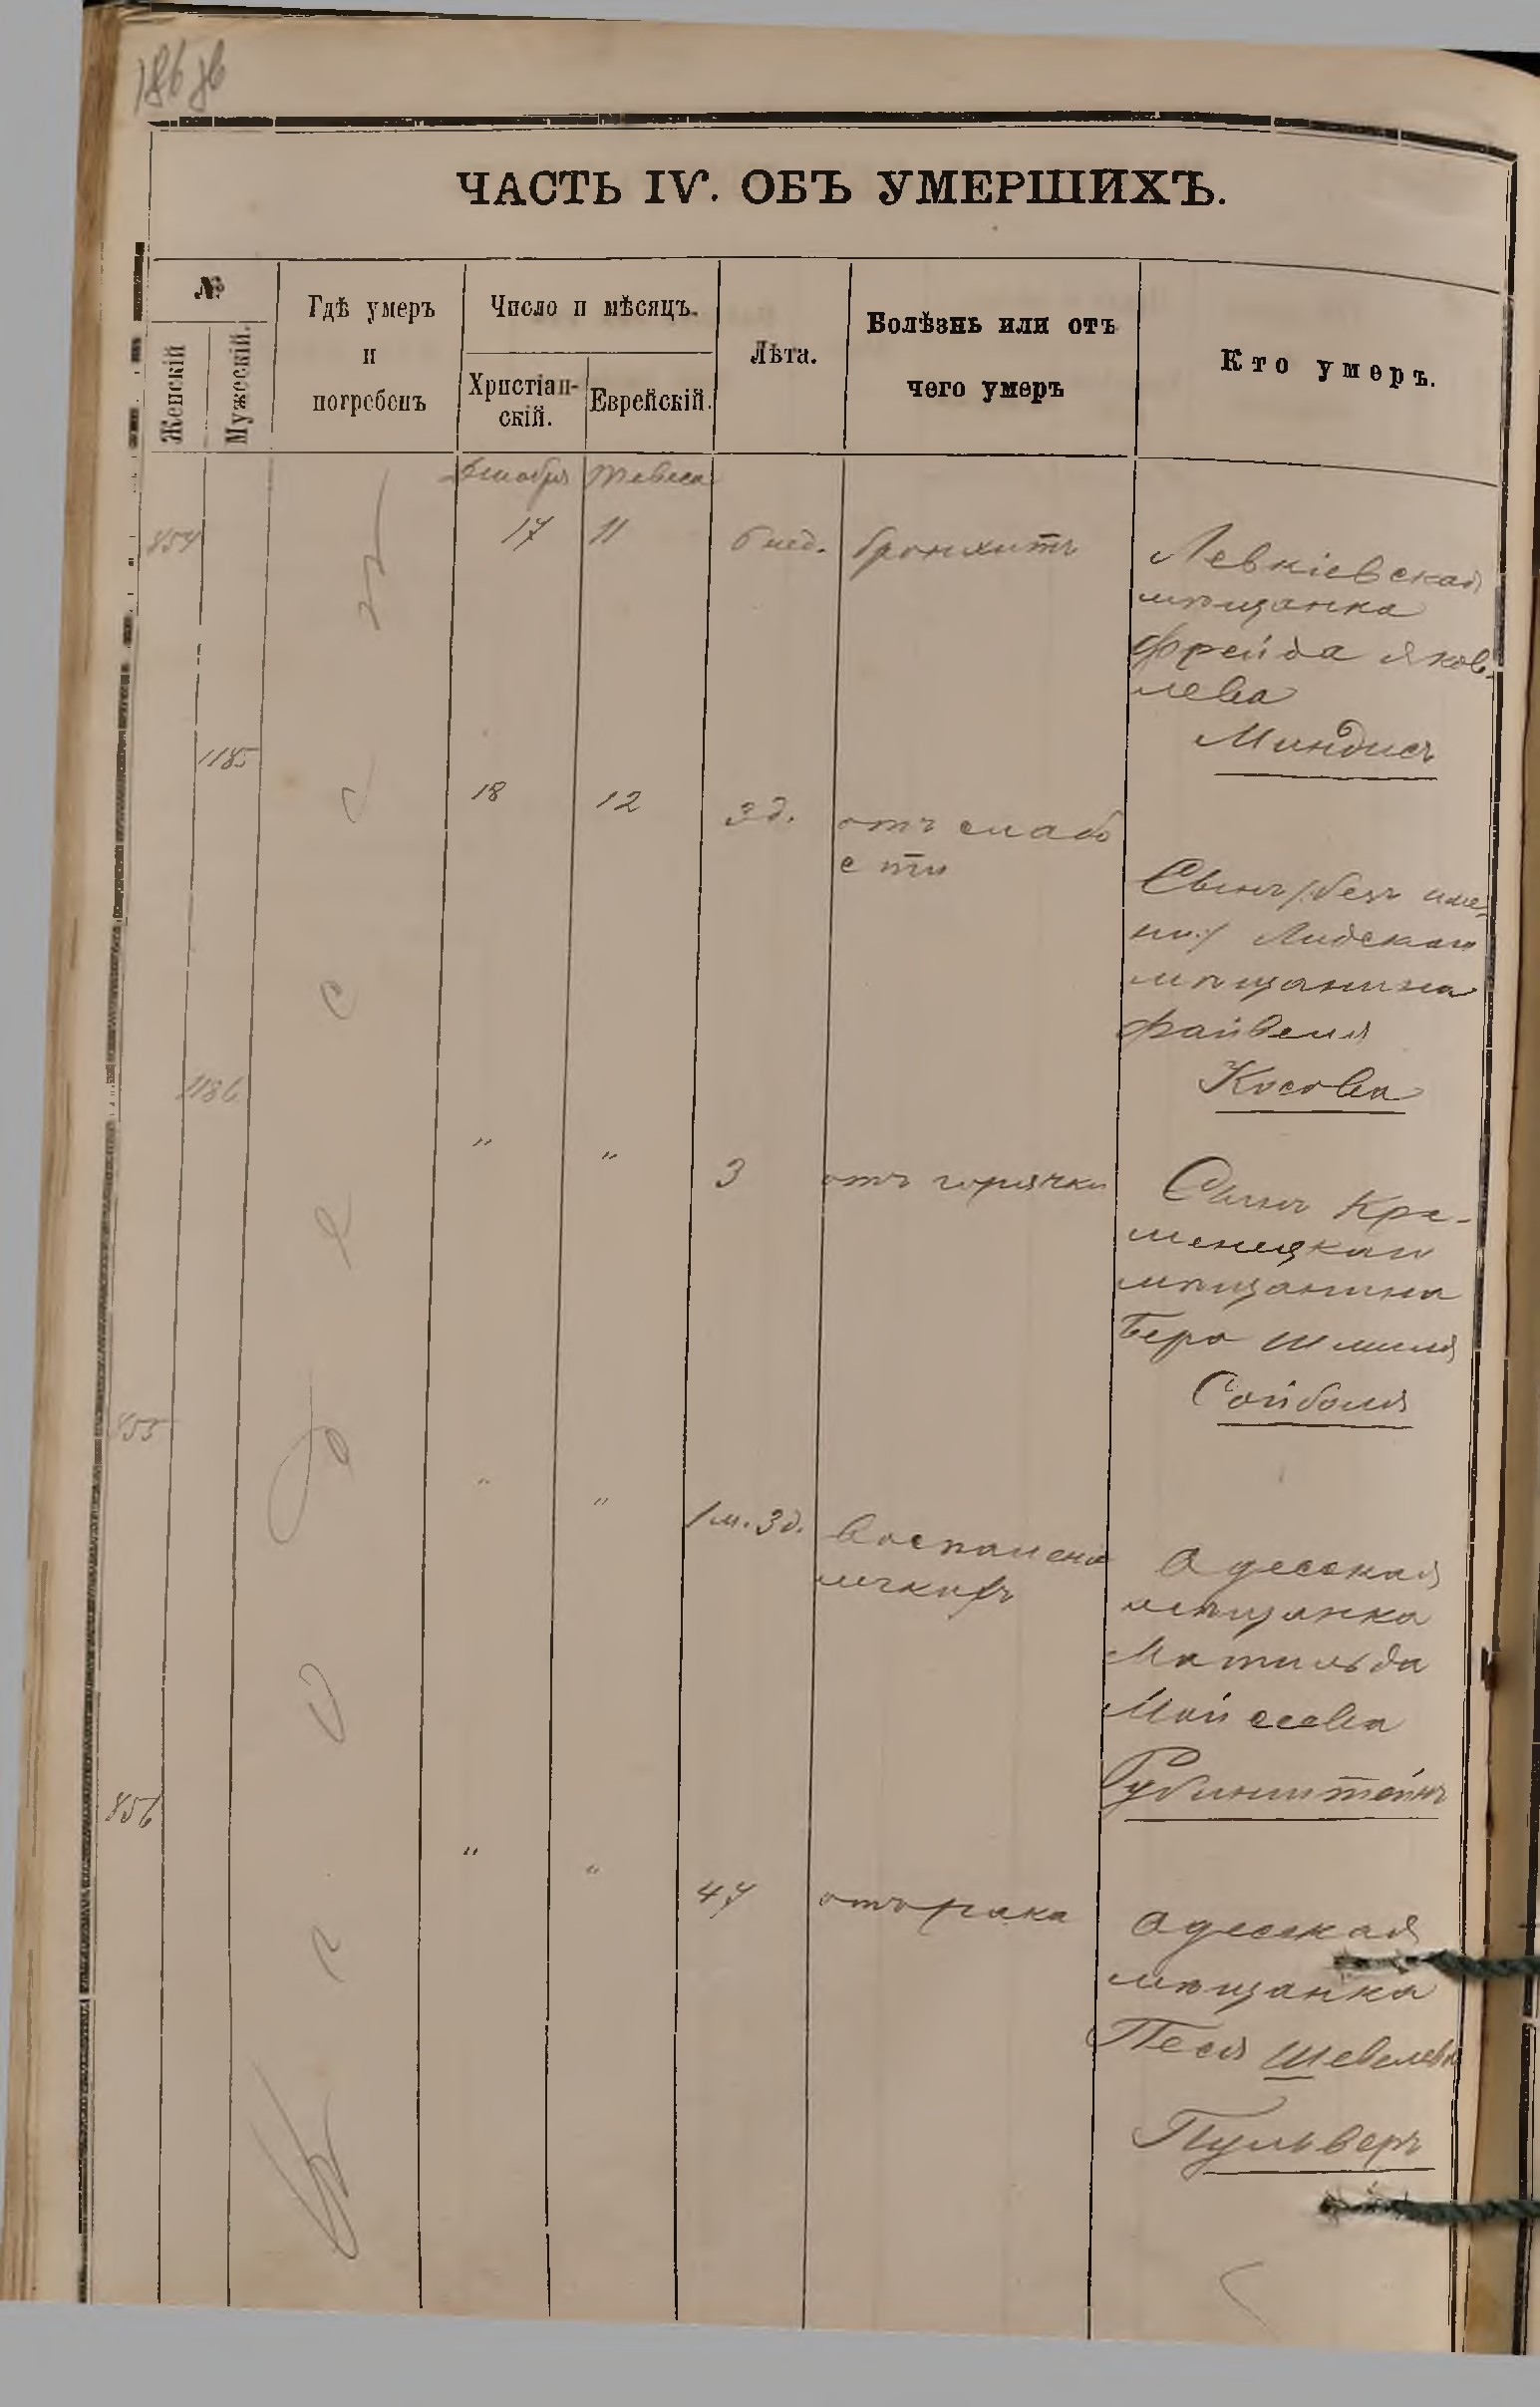 ЧАСТЬ IV. ОБЪ УМЕРШИХЪ.
№
Женскій
Мужескій.
Гдѣ умеръ
и
погребенъ
Число и мѣсяцъ.
Христіан-
скій.
Еврейскій.
Лѣта.
Болѣзнь или отъ
чего умеръ
Кто умеръ.
Декабря Тевеса
854 17 11 6 нед. бронхитъ
Левкіевская
мѣщанка
Фрейда Яков-
лева
Миндисъ
1185 18 12 3 д. отъ слабо
сти
Сынъ /:безъ име-
ни:/ Лидскаго
мѣщанина
Файвеля
Косова
1186 " " 3 отъ горячки
Сынъ Кре-
менецкаго
мѣщанина
Беро Шмиля
Сойболя
855 " " 1 м. 3 д. Воспаленіе
легкихъ
Одесская
мѣщанка
Матильда
Мойсеева
Рубинштейнъ
856 " " 47 отъ рака
Одесская
мѣщанка
Песя Шевелева
Пульверъ
въ Одессѣ